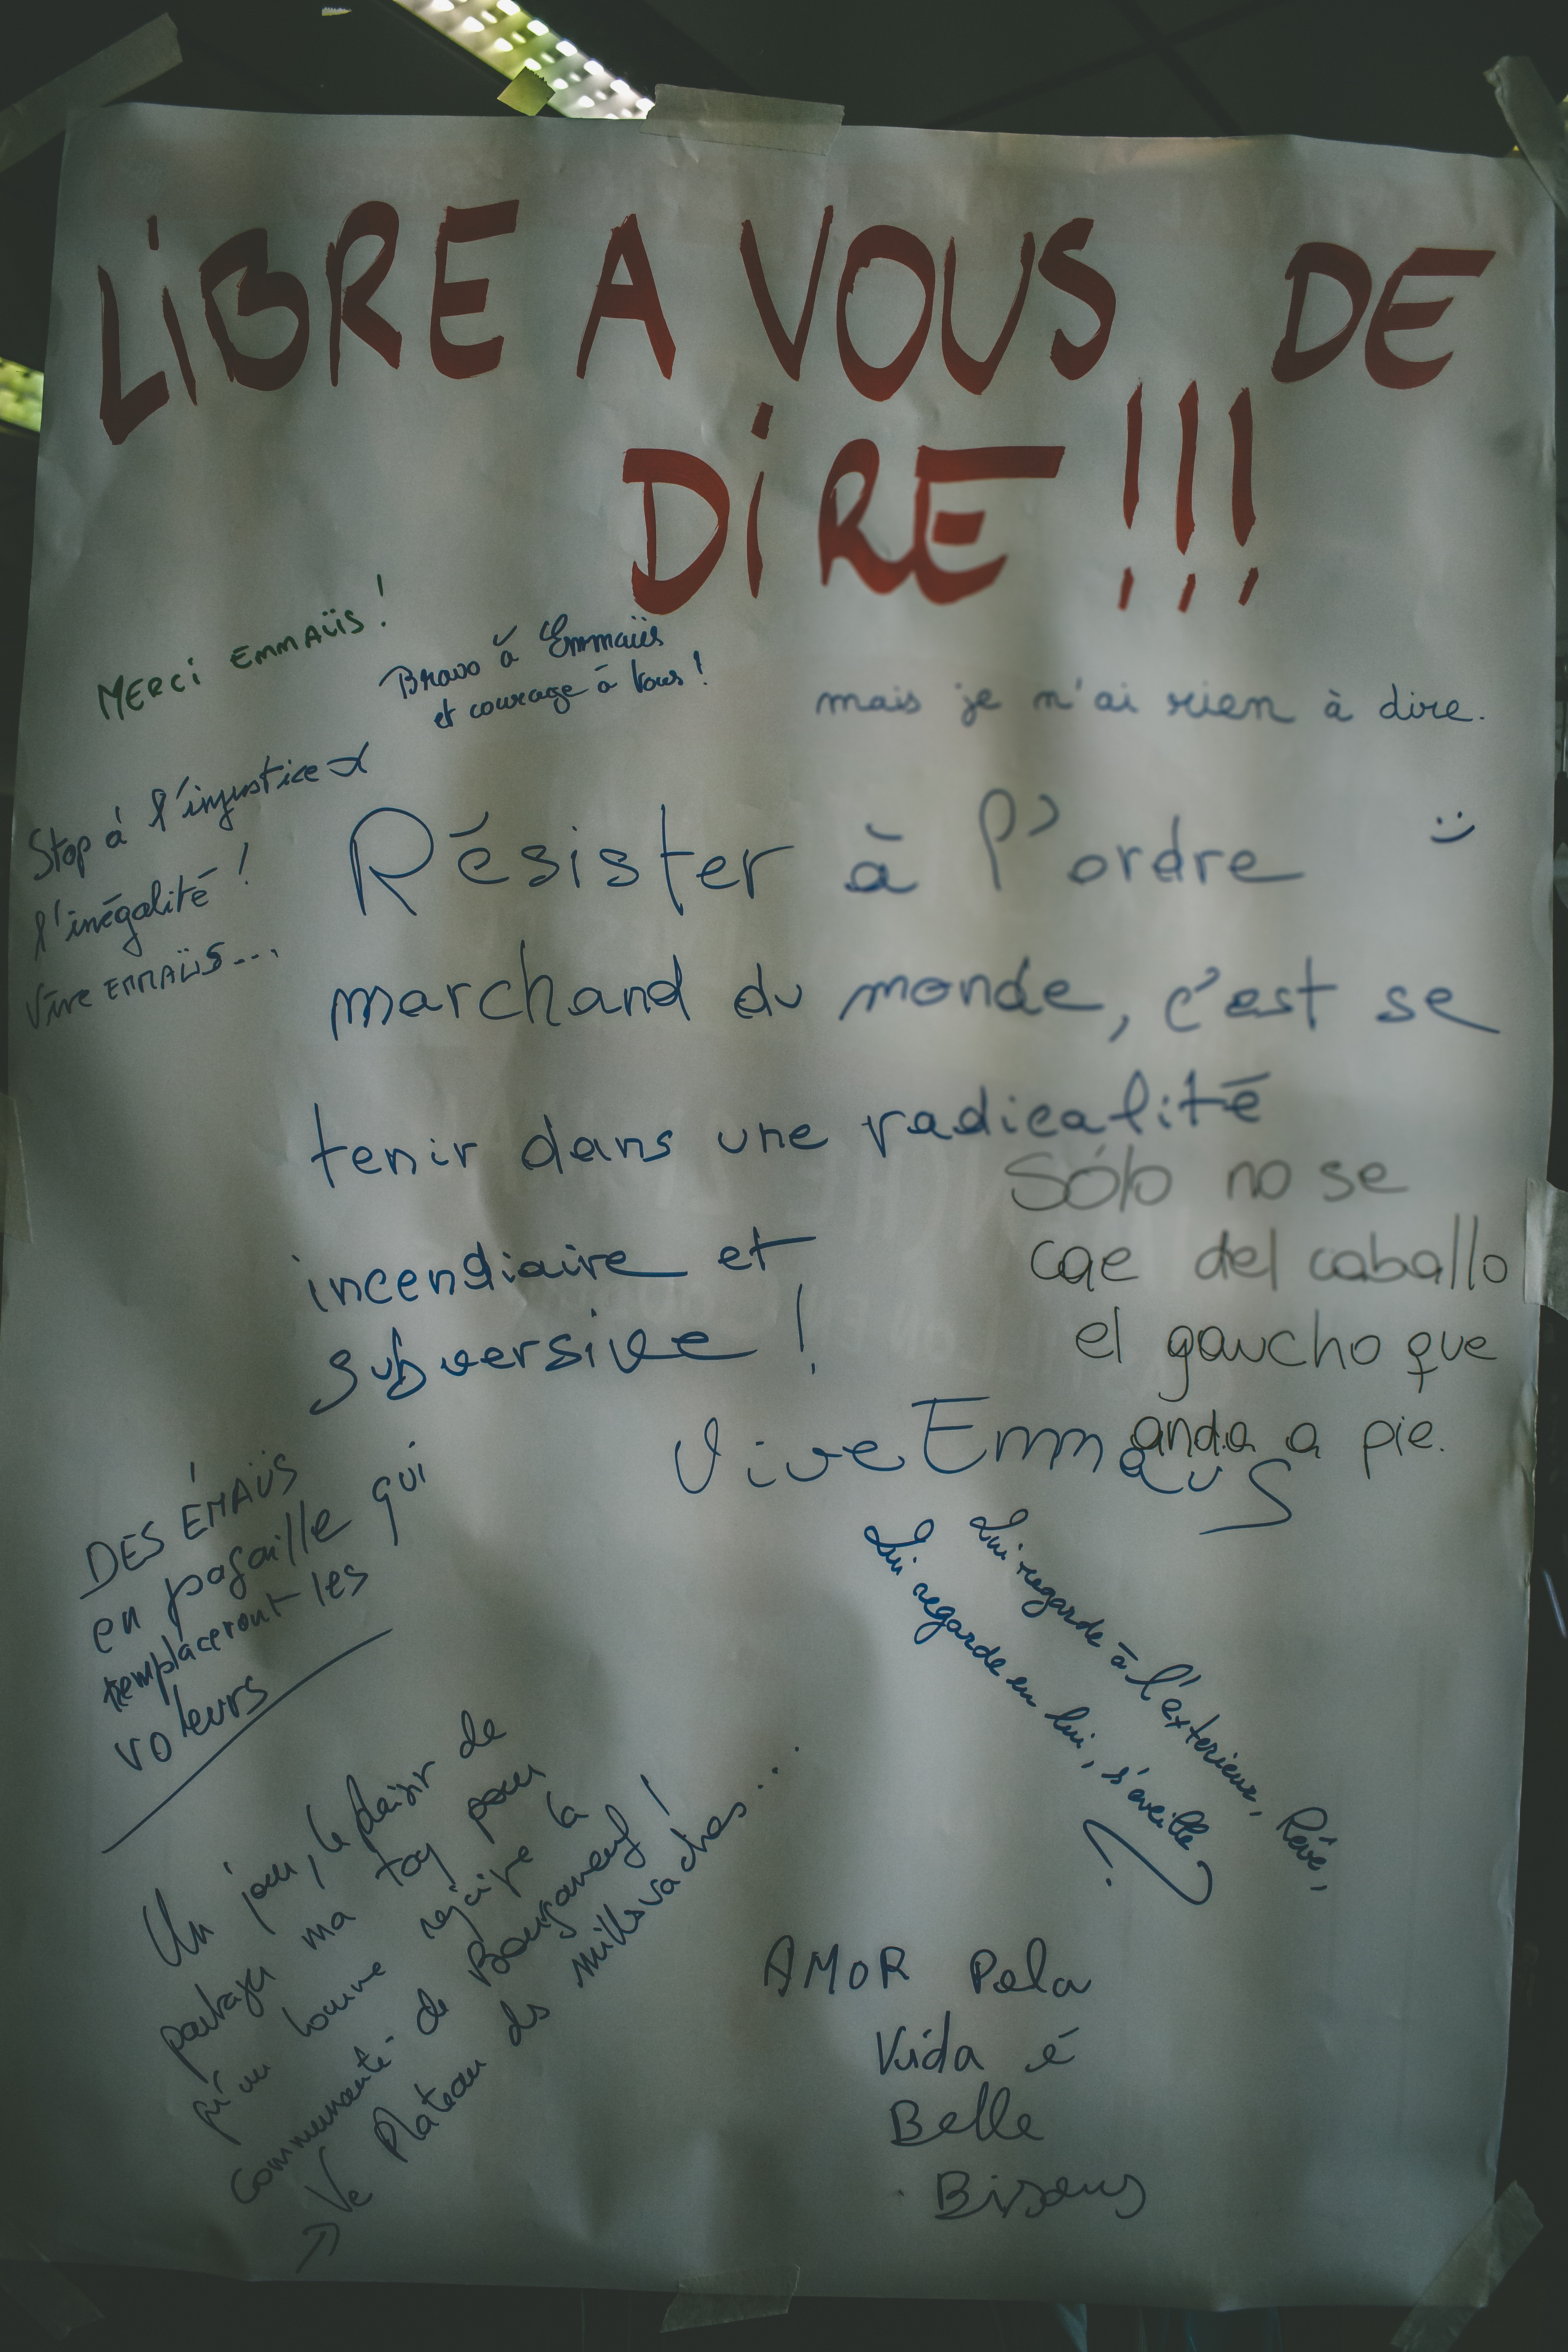 LiBRE A VOUS DE
DiRE !!!
MERCi EMMAÜS !
Bravo à Emmaüs
et courage à vous !
mais je n'ai rien à dire.
:)
Stop à l'injustice
l'inégalité !
Vive EMMAÜS...
Résister à l'ordre
marchand du monde, c'est se
tenir dans une radicalité
incendiaire et
subversive !
Sólo no se
cae del caballo
el gaucho que
anda a pie.
Vive Emmaus
DES ÉMAÜS
en pagaille qui
remplaceront les
voleurs
Qui regarde à l'exterieur, Rêve,
Qui regarde en lui, s'éveille
Un jour, le plaisir de
partager ma toy pour
qu'un homme rejoigne la
Communauté de Bourganeuf !
→ Ve Plateau de millevaches...
AMOR Pela
Vida é
Belle
Bisous